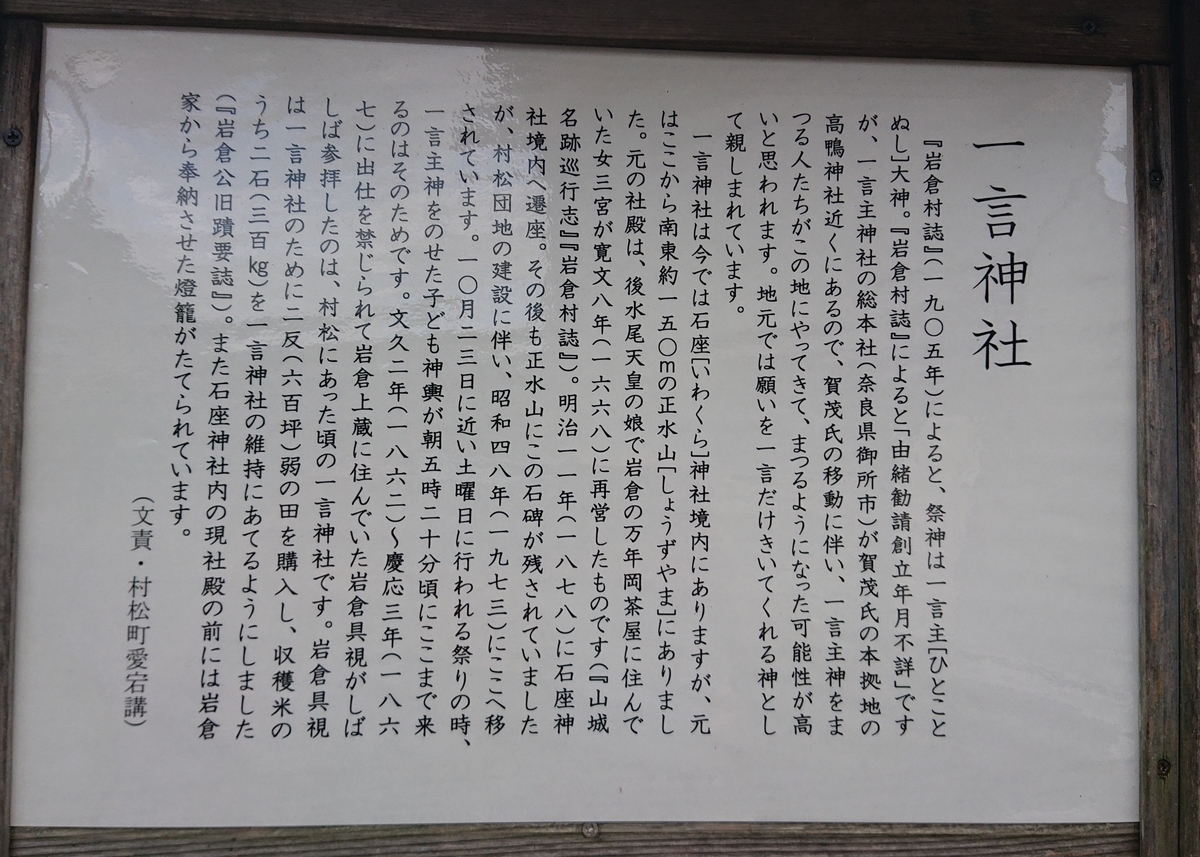 一言神社
『岩倉村誌』(一九〇五年)によると、祭神は一言主[ひとこと
ぬし]大神。『岩倉村誌』によると「由緒勧請創立年月不詳」です
が、一言主神社の総本社(奈良県御所市)が賀茂氏の本拠地の
高鴨神社近くにあるので、賀茂氏の移動に伴い、一言主神をま
つる人たちがこの地にやってきて、まつるようになった可能性が高
いと思われます。地元では願いを一言だけきいてくれる神とし
て親しまれています。
一言神社は今では石座[いわくら]神社境内にありますが、元
はここから南東約一五〇mの正水山[しょうずやま]にありまし
た。元の社殿は、後水尾天皇の娘で岩倉の万年岡茶屋に住んで
いた女三宮が寛文八年(一六六八)に再営したものです(『山城
名跡巡行志』『岩倉村誌』)。明治一一年(一八七八)に石座神
社境内へ遷座。その後も正水山にこの石碑が残されていました
が、村松団地の建設に伴い、昭和四八年(一九七三)にここへ移
されています。一〇月二三日に近い土曜日に行われる祭りの時、
一言主神をのせた子ども神輿が朝五時二十分頃にここまで来
るのはそのためです。文久二年(一八六二)～慶応三年(一八六
七)に出仕を禁じられて岩倉上蔵に住んでいた岩倉具視がしば
しば参拝したのは、村松にあった頃の一言神社です。岩倉具視
は一言神社のために二反(六百坪)弱の田を購入し、収穫米の
うち二石(三百㎏)を一言神社の維持にあてるようにしました
(『岩倉公旧蹟要誌』)。また石座神社内の現社殿の前には岩倉
家から奉納させた燈籠がたてられています。
(文責・村松町愛宕講)